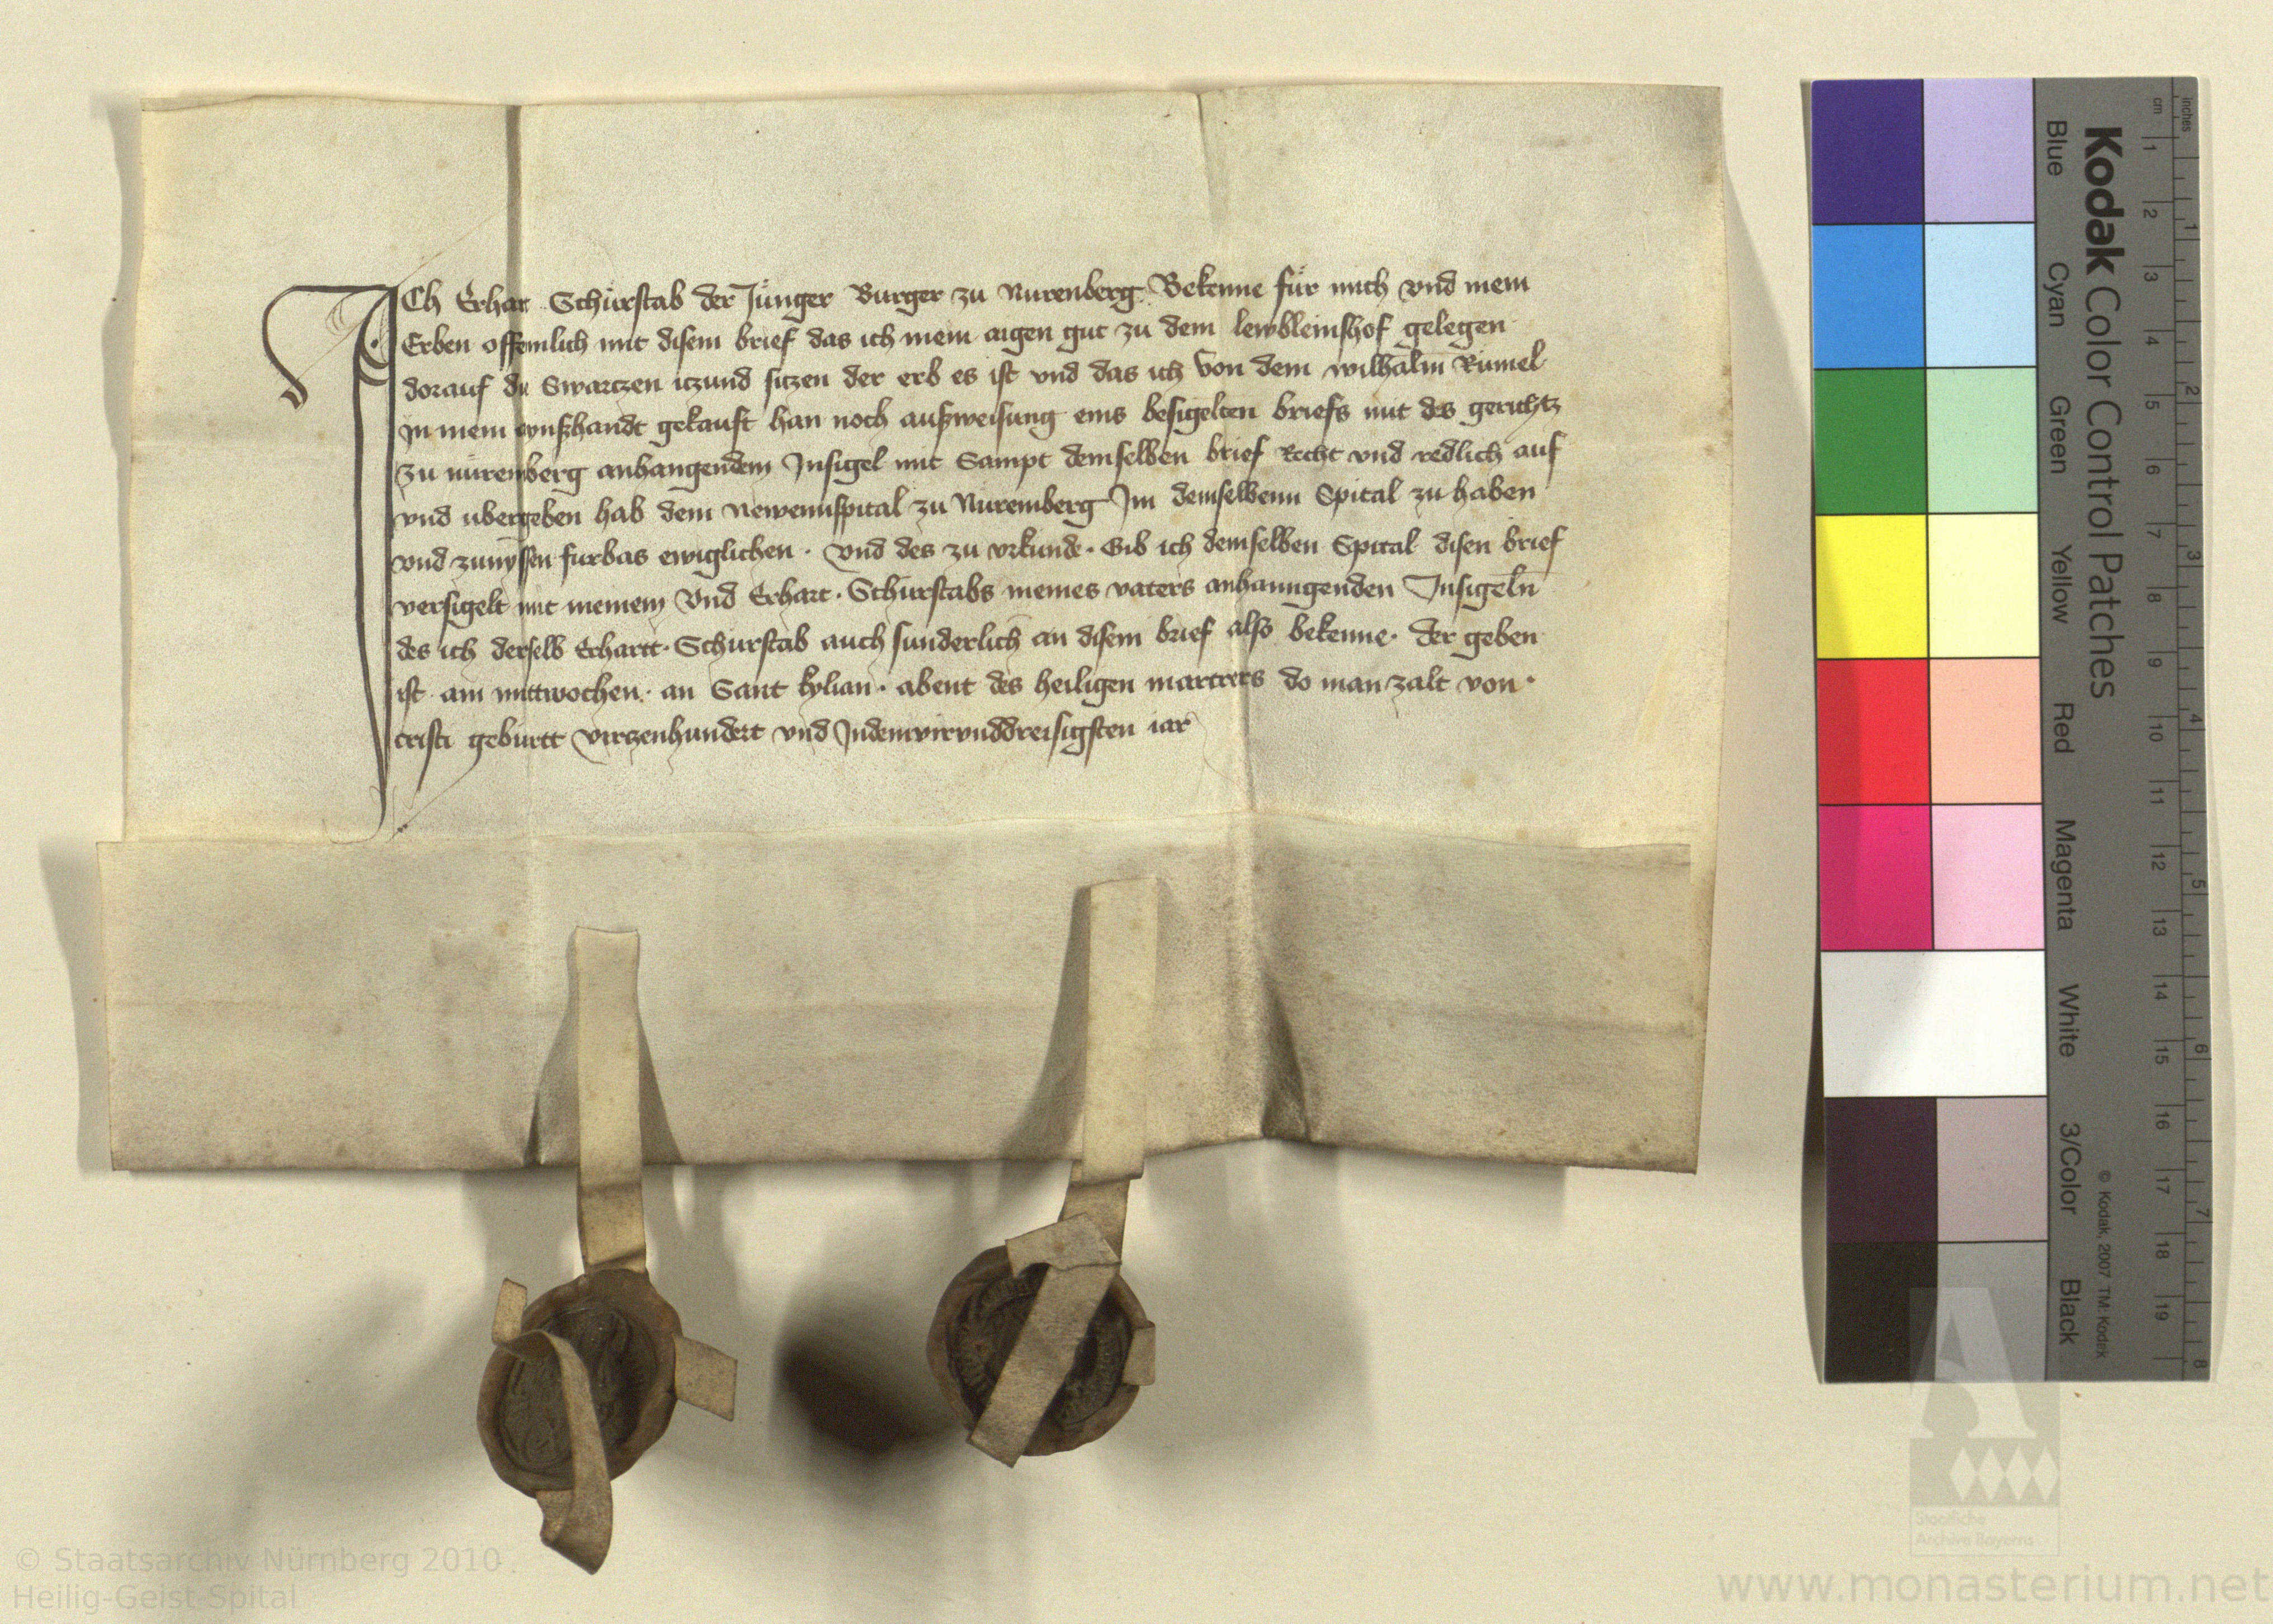 ICh Erhar Schürstab der Jünger Burger zu Nurenberg Bekenne für mich vnd mein
Erben offenlich mit disem brief das ich mein aigen gut zu dem lewbleinshof gelegen
dorauf die Swarczen iczund siczen der erb es ist vnd das ich von dem wilhalm Rümel
in mein hant gekauft han noch außweisung eins besigelten briefs mit des gerichtz
zu nürenberg anhangendem Insigel mit Sampt demselben brief Recht vnd redlich auf
vnd ubergeben hab dem Newennspital zu Nüremberg Im demselbenn Spital zu haben
vnd zunyssen furbas ewiglichen · vnd des zu vrkunde · Gib ich demselben Spital disen brief
versigelt mit meinem Vnd Erhart · Schürstabs meines vaters anhanngenden Insigeln
des ich derselb Erhartt · Schürstab auch sunderlich an disem brief also bekenne · der geben
ist am mittwochen · an Sant kylian · abent des heiligen martrers do man zalt von ·
cristi geburtt virczenhundert vnd Indemvirvnddreisigsten iar
Kodak Color Control Patches
Blue Cyan Green Yellow Red Magenta White 3/Color Black
© Kodak, 2007 TM: Kodak
inches 1 2 3 4 5 6 7 8
cm 1 2 3 4 5 6 7 8 9 10 11 12 13 14 15 16 17 18 19
Staatliche
Archive Bayerns
© Staatsarchiv Nürnberg 2010
Heilig-Geist-Spital
www.monasterium.net